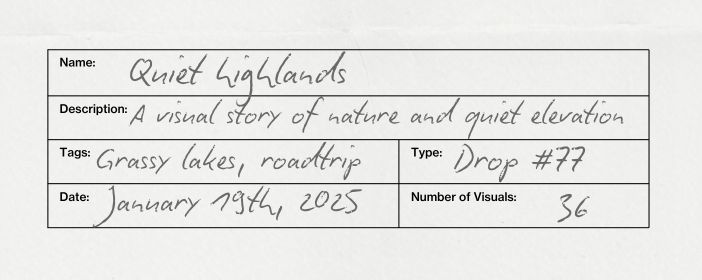 Name: Quiet highlands
Description: A visual story of nature and quiet elevation
Tags: Grassy lakes, roadtrip Type: Drop #77
Date: January 19th, 2025 Number of Visuals: 36